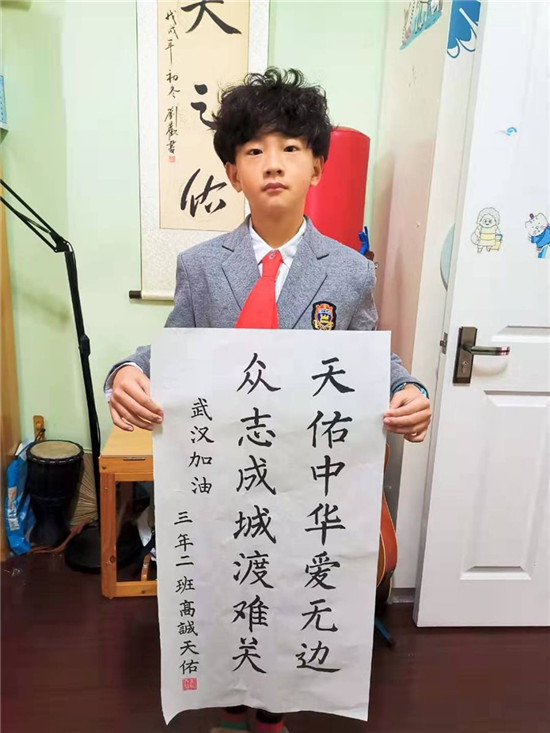 天佑中华爱无边
众志成城渡难关
武汉加油
三年二班高誠天佑
天之佑
戊戌年初冬劉